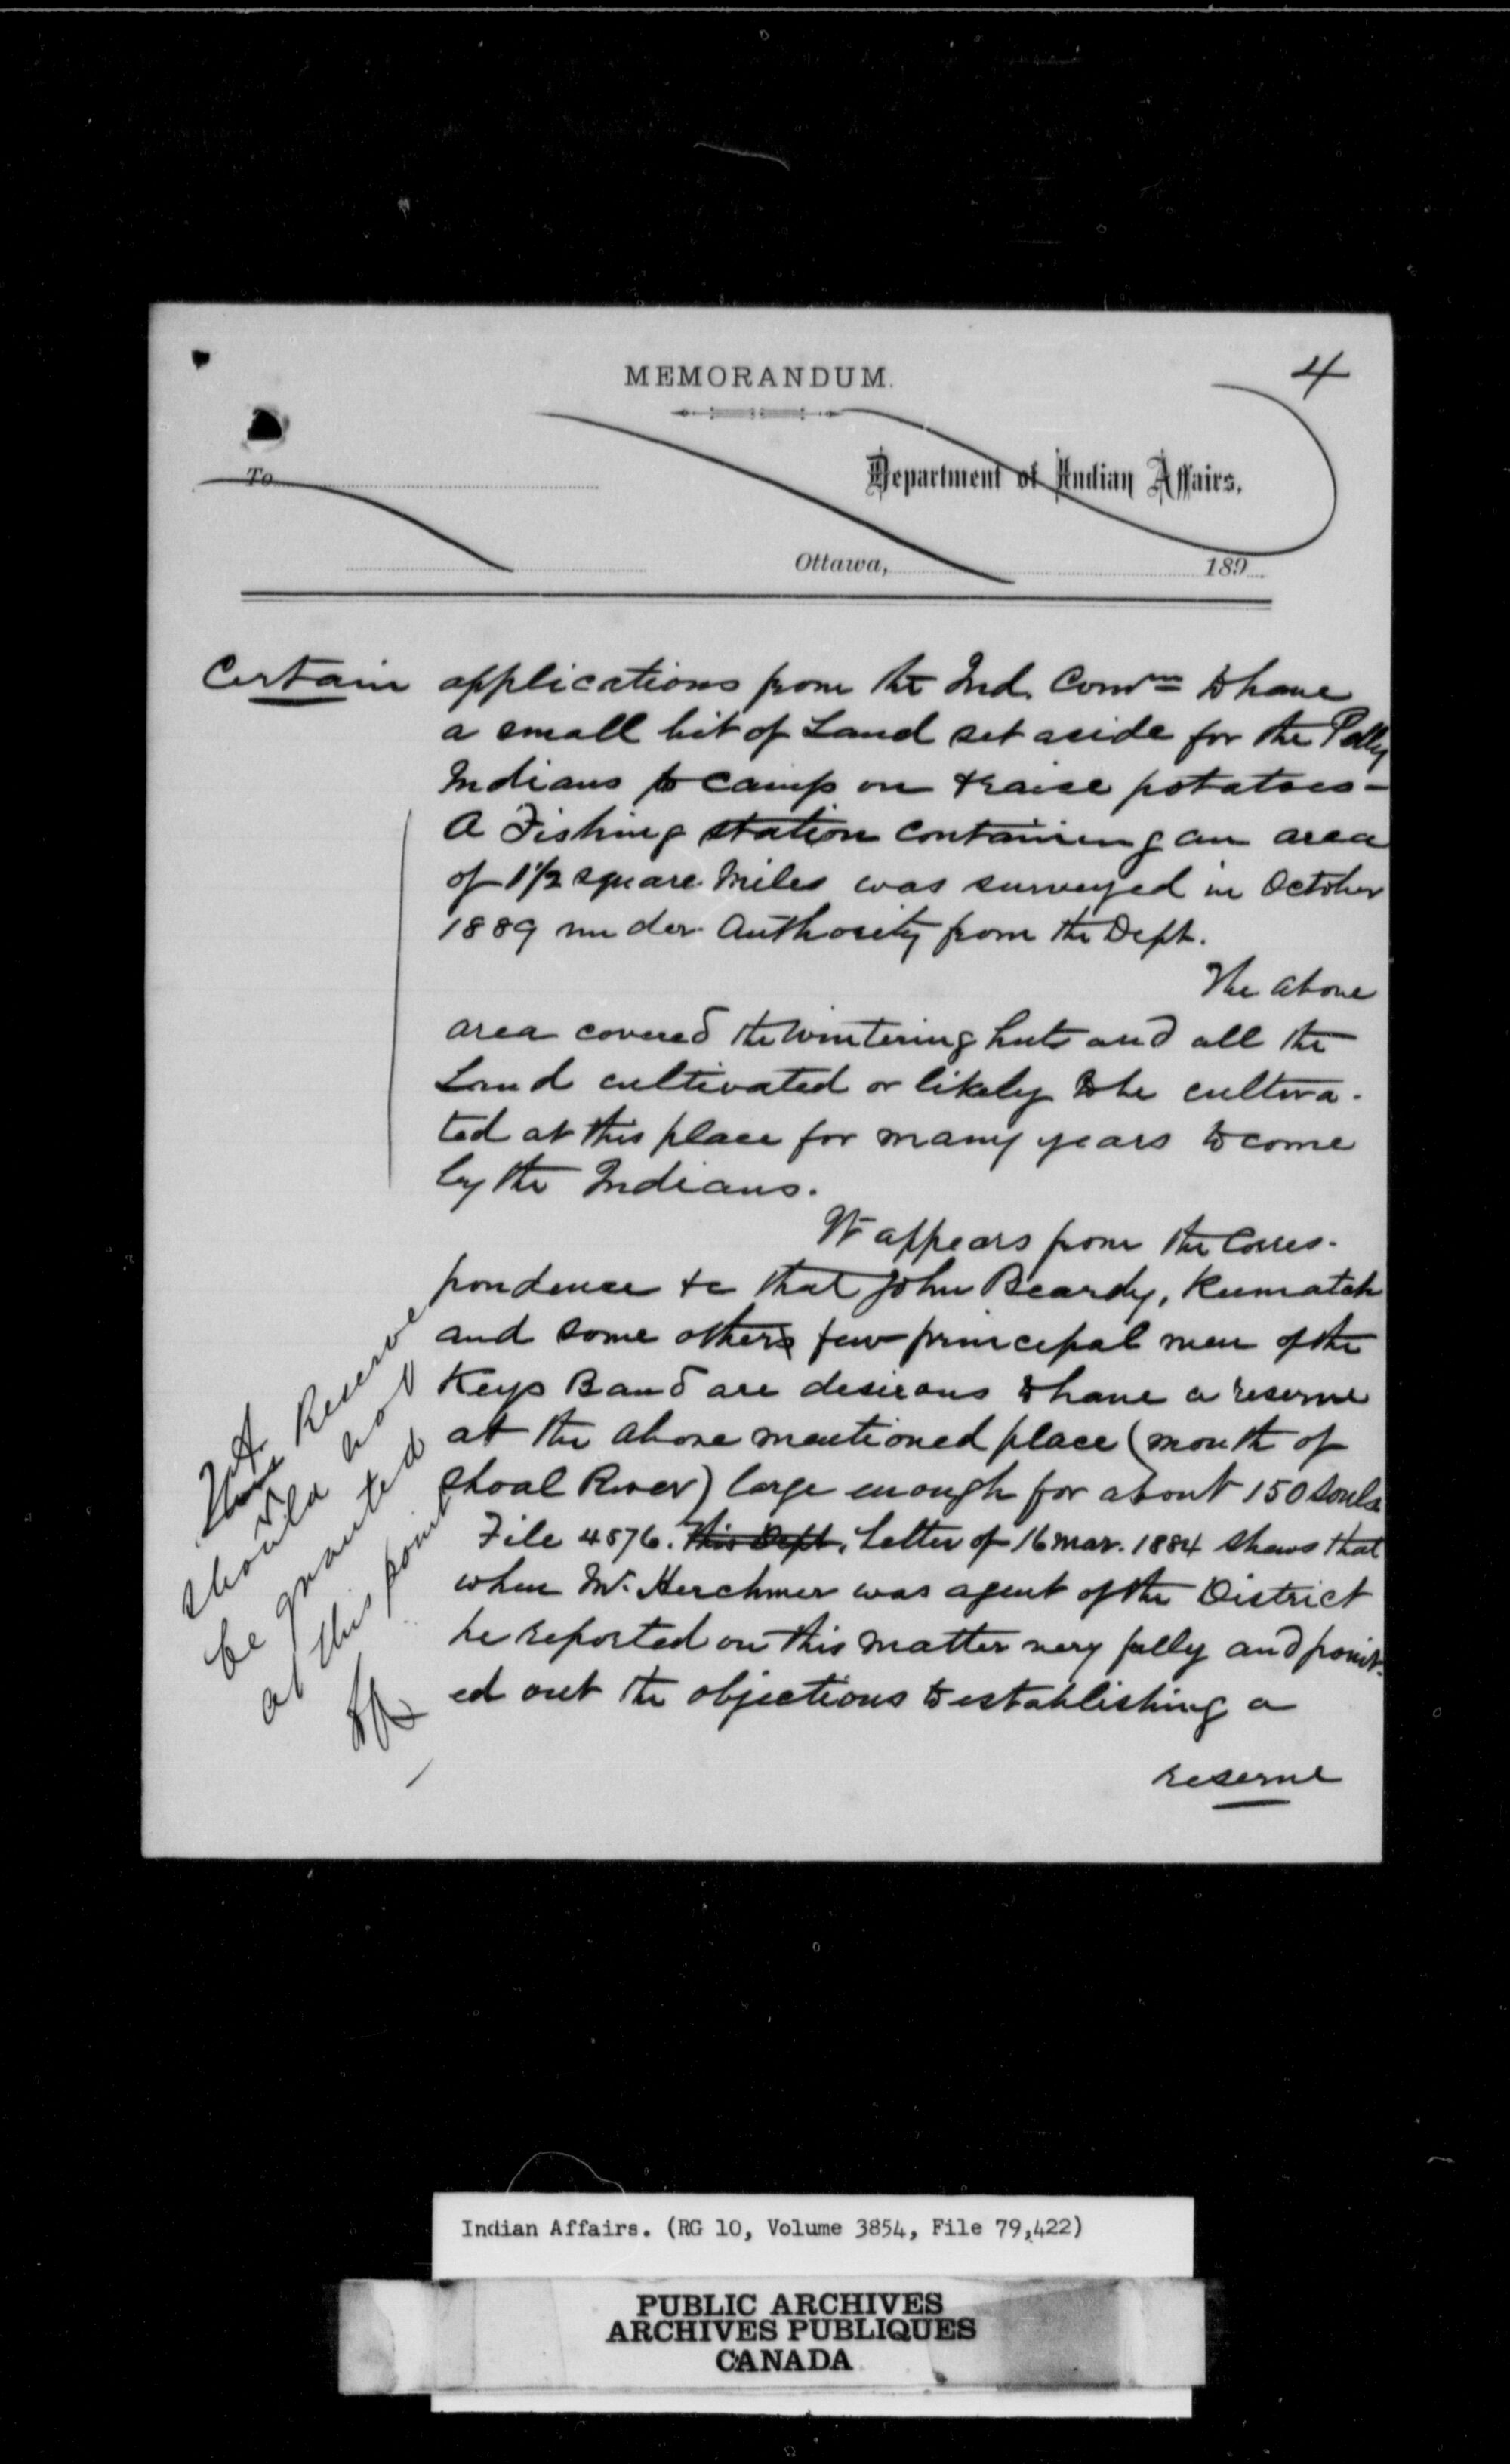 MEMORANDUM.
4
To
Department of Indian Affairs,
Ottawa, 189
Certain applications from the Ind. Comr to have
a small bit of Land set aside for the Pelly
Indians to camp on & raise potatoes -
A Fishing station containing an area
of 1 1/2 square miles was surveyed in October
1889 under Authority from the Dept.
The above
area covered the wintering huts and all the
Land cultivated or likely to be cultiva-
ted at this place for many years to come
by the Indians.
It appears from the Corres-
pondence &c that John Beardy, Keematch
and some others few principal men of the
Keys Band are desirous to have a reserve
at the above mentioned place (mouth of
Shoal River) large enough for about 150 souls
File 4576. This Dept. Letter of 16 Mar. 1884 shews that
when Mr. Herchmer was agent of the District
he reported on this matter very fully and point-
ed out the objections to establishing a
reserve
A Reserve
should not
be granted
at this point
Indian Affairs. (RG 10, Volume 3854, File 79,422)
PUBLIC ARCHIVES
ARCHIVES PUBLIQUES
CANADA